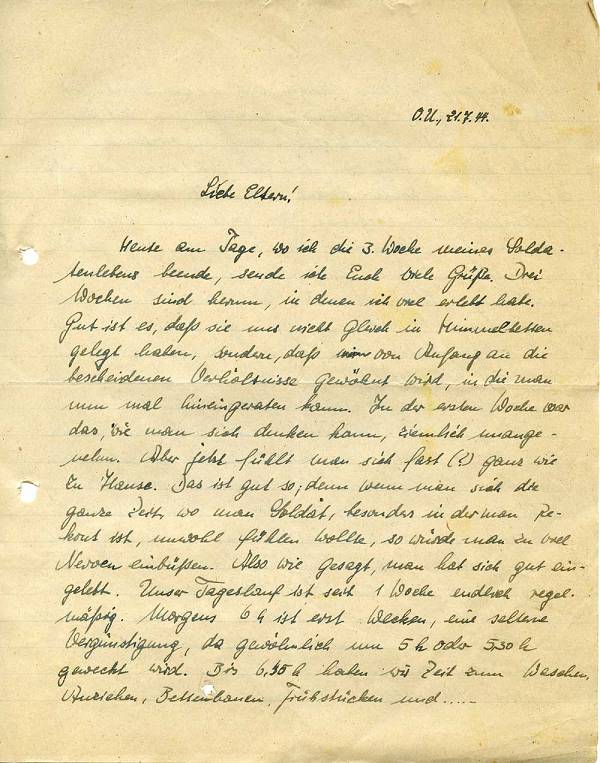 O.U., 21.7.44.
Liebe Eltern!
Heute am Tage, wo ich die 3. Woche meines Solda-
tenlebens beende, sende ich Euch viele Grüße. Drei
Wochen sind herum, in denen ich viel erlebt habe.
Gut ist es, daß sie uns nicht gleich in Himmelbetten
gelegt haben, sondern, daß man von Anfang an die
bescheidenen Verhältnisse gewöhnt wird, in die man
nun mal hineingeraten kann. In der ersten Woche war
das, wie man sich denken kann, ziemlich unange-
nehm. Aber jetzt fühlt man sich fast (?) ganz wie
zu Hause. Das ist gut so; denn wenn man sich die
ganze Zeit, wo man Soldat, besonders in der man Re-
krut ist, unwohl fühlen wollte, so würde man zu viel
Nerven einbüßen. Also wie gesagt, man hat sich gut ein-
gelebt. Unser Tageslauf ist seit 1 Woche endlich regel-
mäßig. Morgens 6 h ist erst Wecken, eine seltene
Vergünstigung, da gewöhnlich um 5 h oder 5,30 h
geweckt wird. Bis 6,45 h haben wir Zeit zum Waschen,
Anziehen, Bettenbauen, Frühstücken und .....